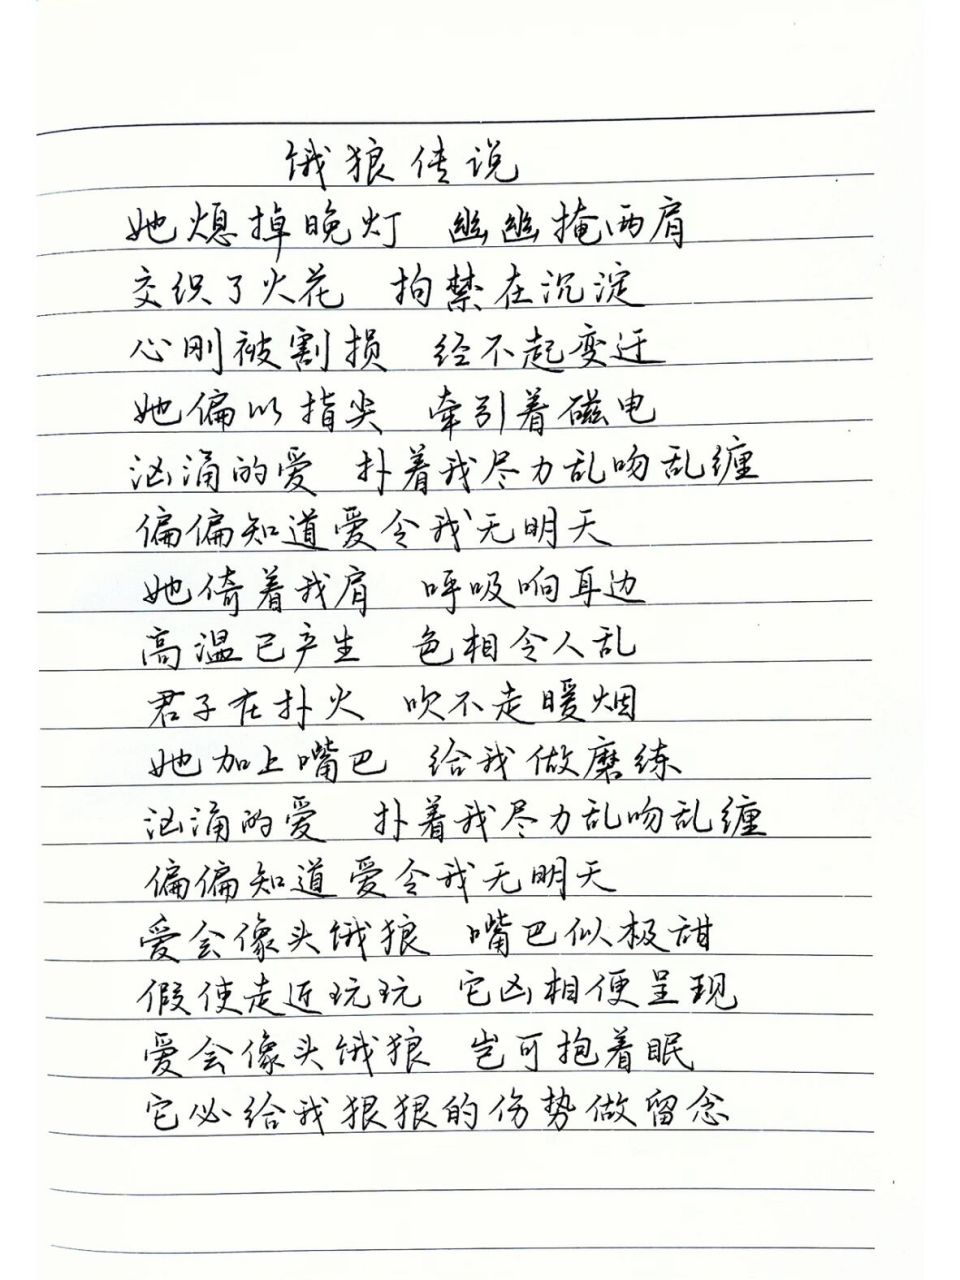 饿狼传说
她熄掉晚灯 幽幽掩两肩
交织了火花 拘禁在沉淀
心刚被割损 经不起变迁
她偏以指尖 牵引着磁电
汹涌的爱 扑着我尽力乱吻乱缠
偏偏知道爱令我无明天
她倚着我肩 呼吸响耳边
高温已产生 色相令人乱
君子在扑火 吹不走暖烟
她加上嘴巴 给我做磨练
汹涌的爱 扑着我尽力乱吻乱缠
偏偏知道爱令我无明天
爱会像头饿狼 嘴巴似极甜
假使走近玩玩 它凶相便呈现
爱会像头饿狼 岂可抱着眠
它必给我狠狠的伤势做留念